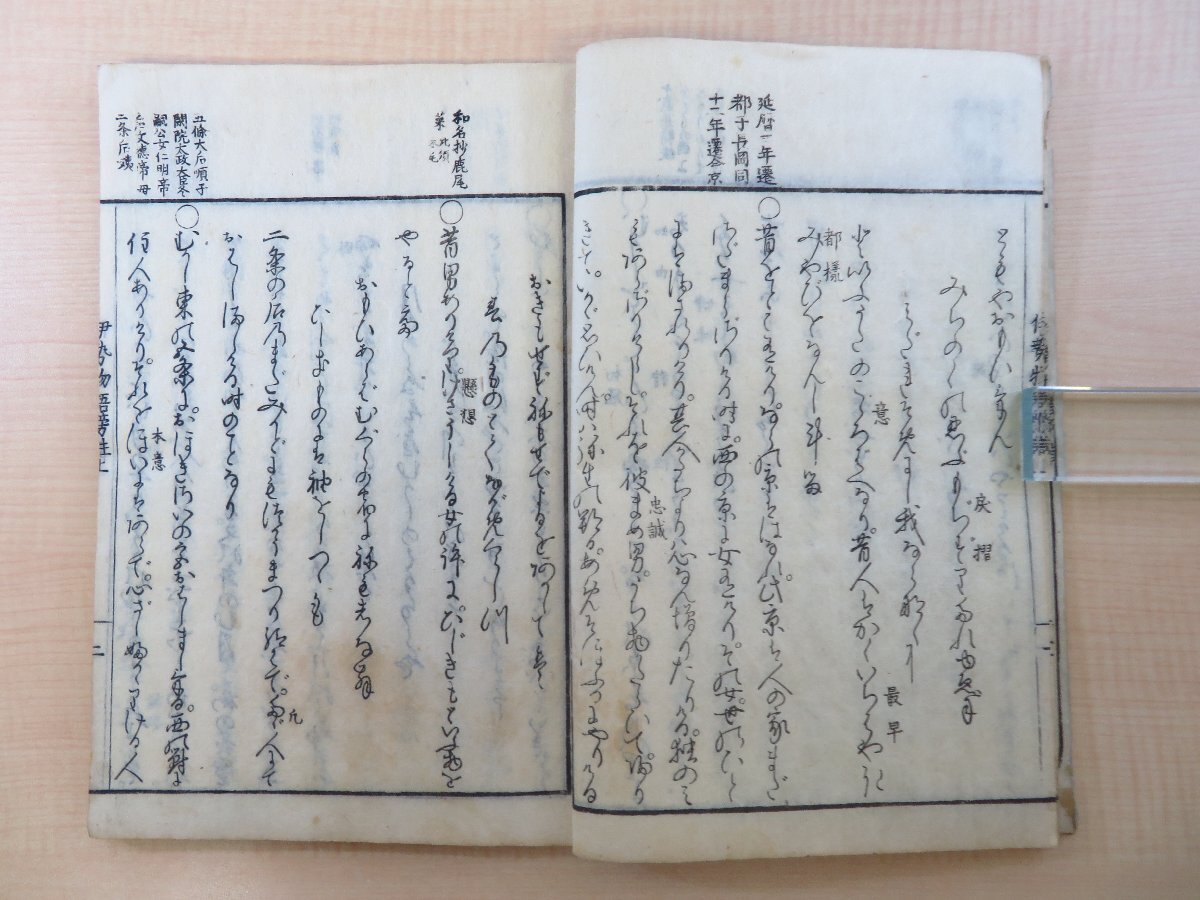 延暦一年遷
都于長岡同
十二年遷今京
ともやおもひけん
みちのくの忍ぶもぢずり誰ゆゑに
戻摺
みだれそめにし我ならなくに
といふうたのこころばへなり。昔人はかくいちはやき
意
最早
みやびをなんしける
都様
○昔をとこ有けり。ならの京ははなれ、此京は人の家まだ
さだまらざりける時に、西の京に女有けり。その女、世の人に
はまされりけり。其人かたちよりは、心なん増りたりける。独のみ
もあらざりけらし。それを彼まめ男、うち物かたらひて、帰り
忠誠
きて、いかゞ思ひけん、時は弥生の朔日、あめそぼふるにやりける
和名抄鹿尾
菜
おきもせずねもせでよるをあかしては
春のものとてながめくらしつ
○昔男ありけり。けさうしける女の許に、ひじきもといふ物を
懸想
やるとて
おもひあらばむぐらの宿にねもしなん
ひじきものには袖をしつゝも
二条の后のまだみかどにもつかうまつり給はで、たゞ人にて
凡
おはしましける時のことなり
五條大后順子
閑院太政大臣冬
嗣公女仁明帝
后文徳帝母
○むかし東の五条に、おほきさいの宮おはしましける。西の対に
住人ありけり。それをほいにはあらで、心ざし
本意
二